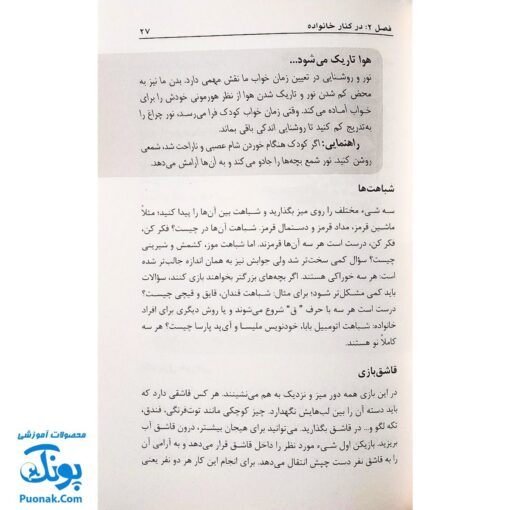 فصل ۲: در کنار خانواده
۲۷
هوا تاریک می‌شود...
نور و روشنایی در تعیین زمان خواب ما نقش مهمی دارد. بدن ما نیز به
محض کم شدن نور و تاریک شدن هوا از نظر هورمونی خودش را برای
خواب آماده می‌کند. وقتی زمان خواب کودک فرا می‌رسد، نور چراغ را
به‌تدریج کم کنید تا روشنایی اندکی باقی بماند.
راهنمایی: اگر کودک هنگام خوردن شام عصبی و ناراحت شد، شمعی
روشن کنید. نور شمع بچه‌ها را جادو می‌کند و به آن‌ها آرامش می‌دهد.
شباهت‌ها
سه شیء مختلف را روی میز بگذارید و شباهت بین آن‌ها را پیدا کنید؛ مثلاً
ماشین قرمز، مداد قرمز و دستمال قرمز. شباهت آن‌ها در چیست؟ فکر
کن، درست است هر سه آن‌ها قرمزند. اما شباهت موز، کشمش و شیرینی
چیست؟ سؤال کمی سخت‌تر شد ولی جوابش نیز به همان اندازه جالب‌تر شده
است: هر سه خوراکی هستند. اگر بچه‌های بزرگتر بخواهند بازی کنند، سؤالات
باید کمی مشکل‌تر شود؛ برای مثال: شباهت قندان، قایق و قیچی چیست؟
درست است هر سه با حرف "ق" شروع می‌شوند و یا روش دیگری برای افراد
خانواده: شباهت اتومبیل بابا، خودنویس ملیسا و آی‌پد پارسا چیست؟ هر سه
کاملاً نو هستند.
قاشق‌بازی
در این بازی همه دور میز و نزدیک به هم می‌نشینند. هر کس قاشقی دارد که
باید دسته آن را بین لب‌هایش نگهدارد. چیز کوچکی مانند توت‌فرنگی، فندق،
تکه لگو و... در قاشق بگذارید. می‌توانید برای هیجان بیشتر، درون قاشق آب
بریزید. بازیکن اول شیء مورد نظر را داخل قاشق قرار می‌دهد و به آرامی آن
را به قاشق نفر دست چپش انتقال می‌دهد. برای انجام این کار هر دو نفر یعنی
محصولات آموزشی
پونک
Puonak.Com